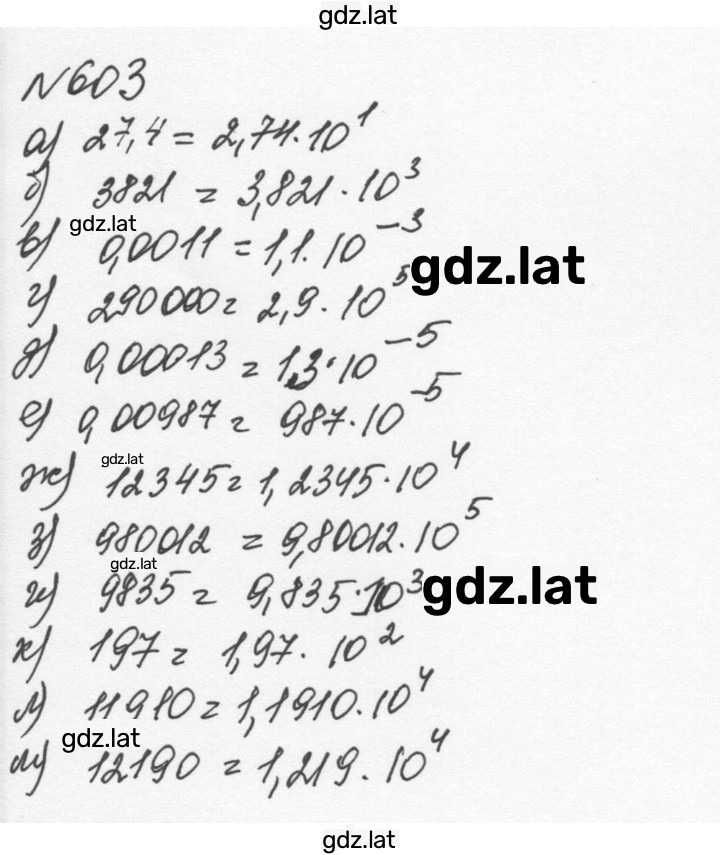 gdz.lat
№603
а) 27,4 = 2,74·10¹
б) 3821 = 3,821·10³
gdz.lat
в) 0,0011 = 1,1·10⁻³
gdz.lat
г) 290000 = 2,9·10⁵
д) 0,00013 = 1,3·10⁻⁵
е) 0,00987 = 987·10⁻⁵
gdz.lat
ж) 12345 = 1,2345·10⁴
з) 980012 = 9,80012·10⁵
gdz.lat
и) 9835 = 9,835·10³
gdz.lat
к) 197 = 1,97·10²
л) 11910 = 1,1910·10⁴
gdz.lat
м) 12190 = 1,219·10⁴
gdz.lat